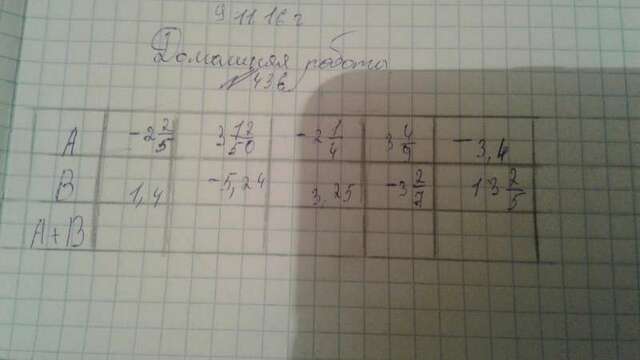 9 11 16 г
Домашняя работа
№ 436
А -2 2/5 3 12/50 -2 1/4 3 4/9 -3,4
В 1,4 -5,24 3,25 -3 2/7 13 2/5
А+В